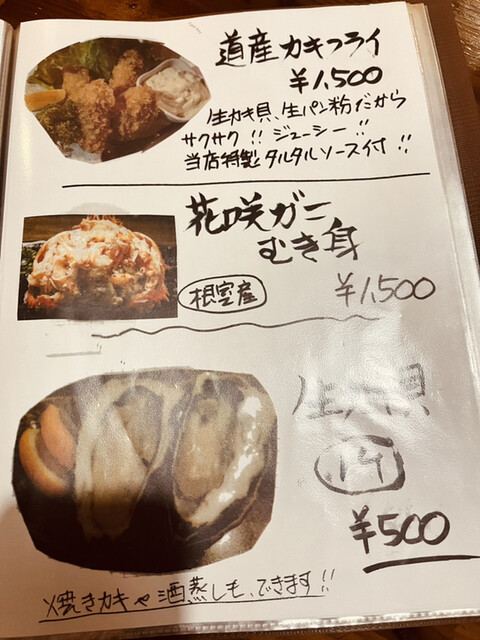 道産カキフライ
¥1,500
生カキ貝、生パン粉だから
サクサク!! ジューシー!!
当店特製タルタルソース付!!
花咲ガニ
むき身
根室産
¥1,500
生カキ貝
1ケ
¥500
焼きカキや酒蒸しも、できます!!